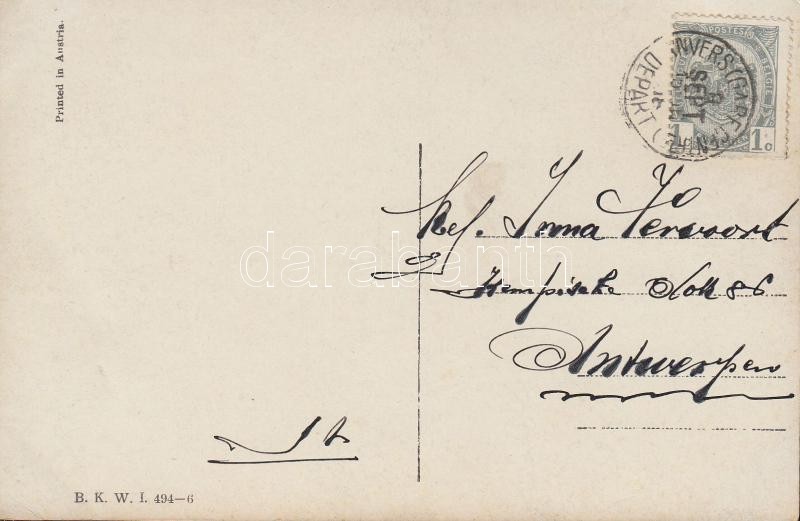 Printed in Austria.
POSTES BELGIQUE
1c
ANVERS (GARE CENTR
8
SEPT
DEPART
Mej. Irma Vervoort
Kempische Dok 86
Antwerpen
darabanth
B. K. W. I. 494—6